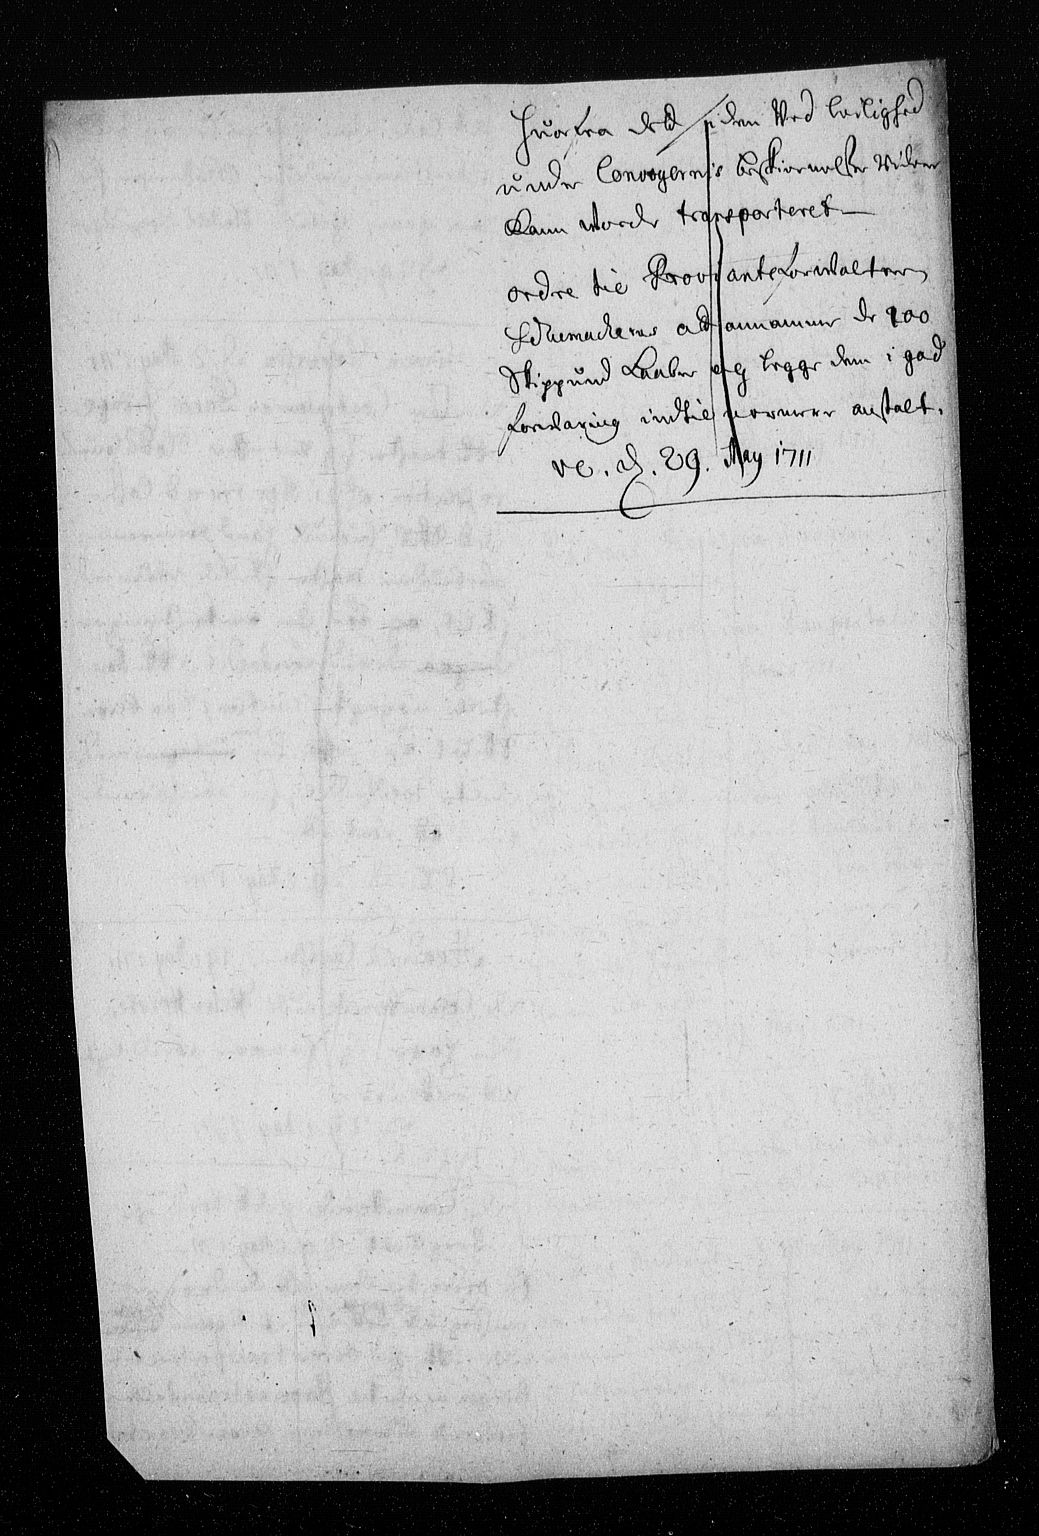 hvorfra det siden ved leilighed
under Convoyernis beskiermelse videre
kann vorde transporteret
ordre til Proviantforvalteren
Schumacheren at annamme de 200
Skippund Kaaber og legge dem i god
forvaring indtil nermere anstalt.
d. 29. May 1711